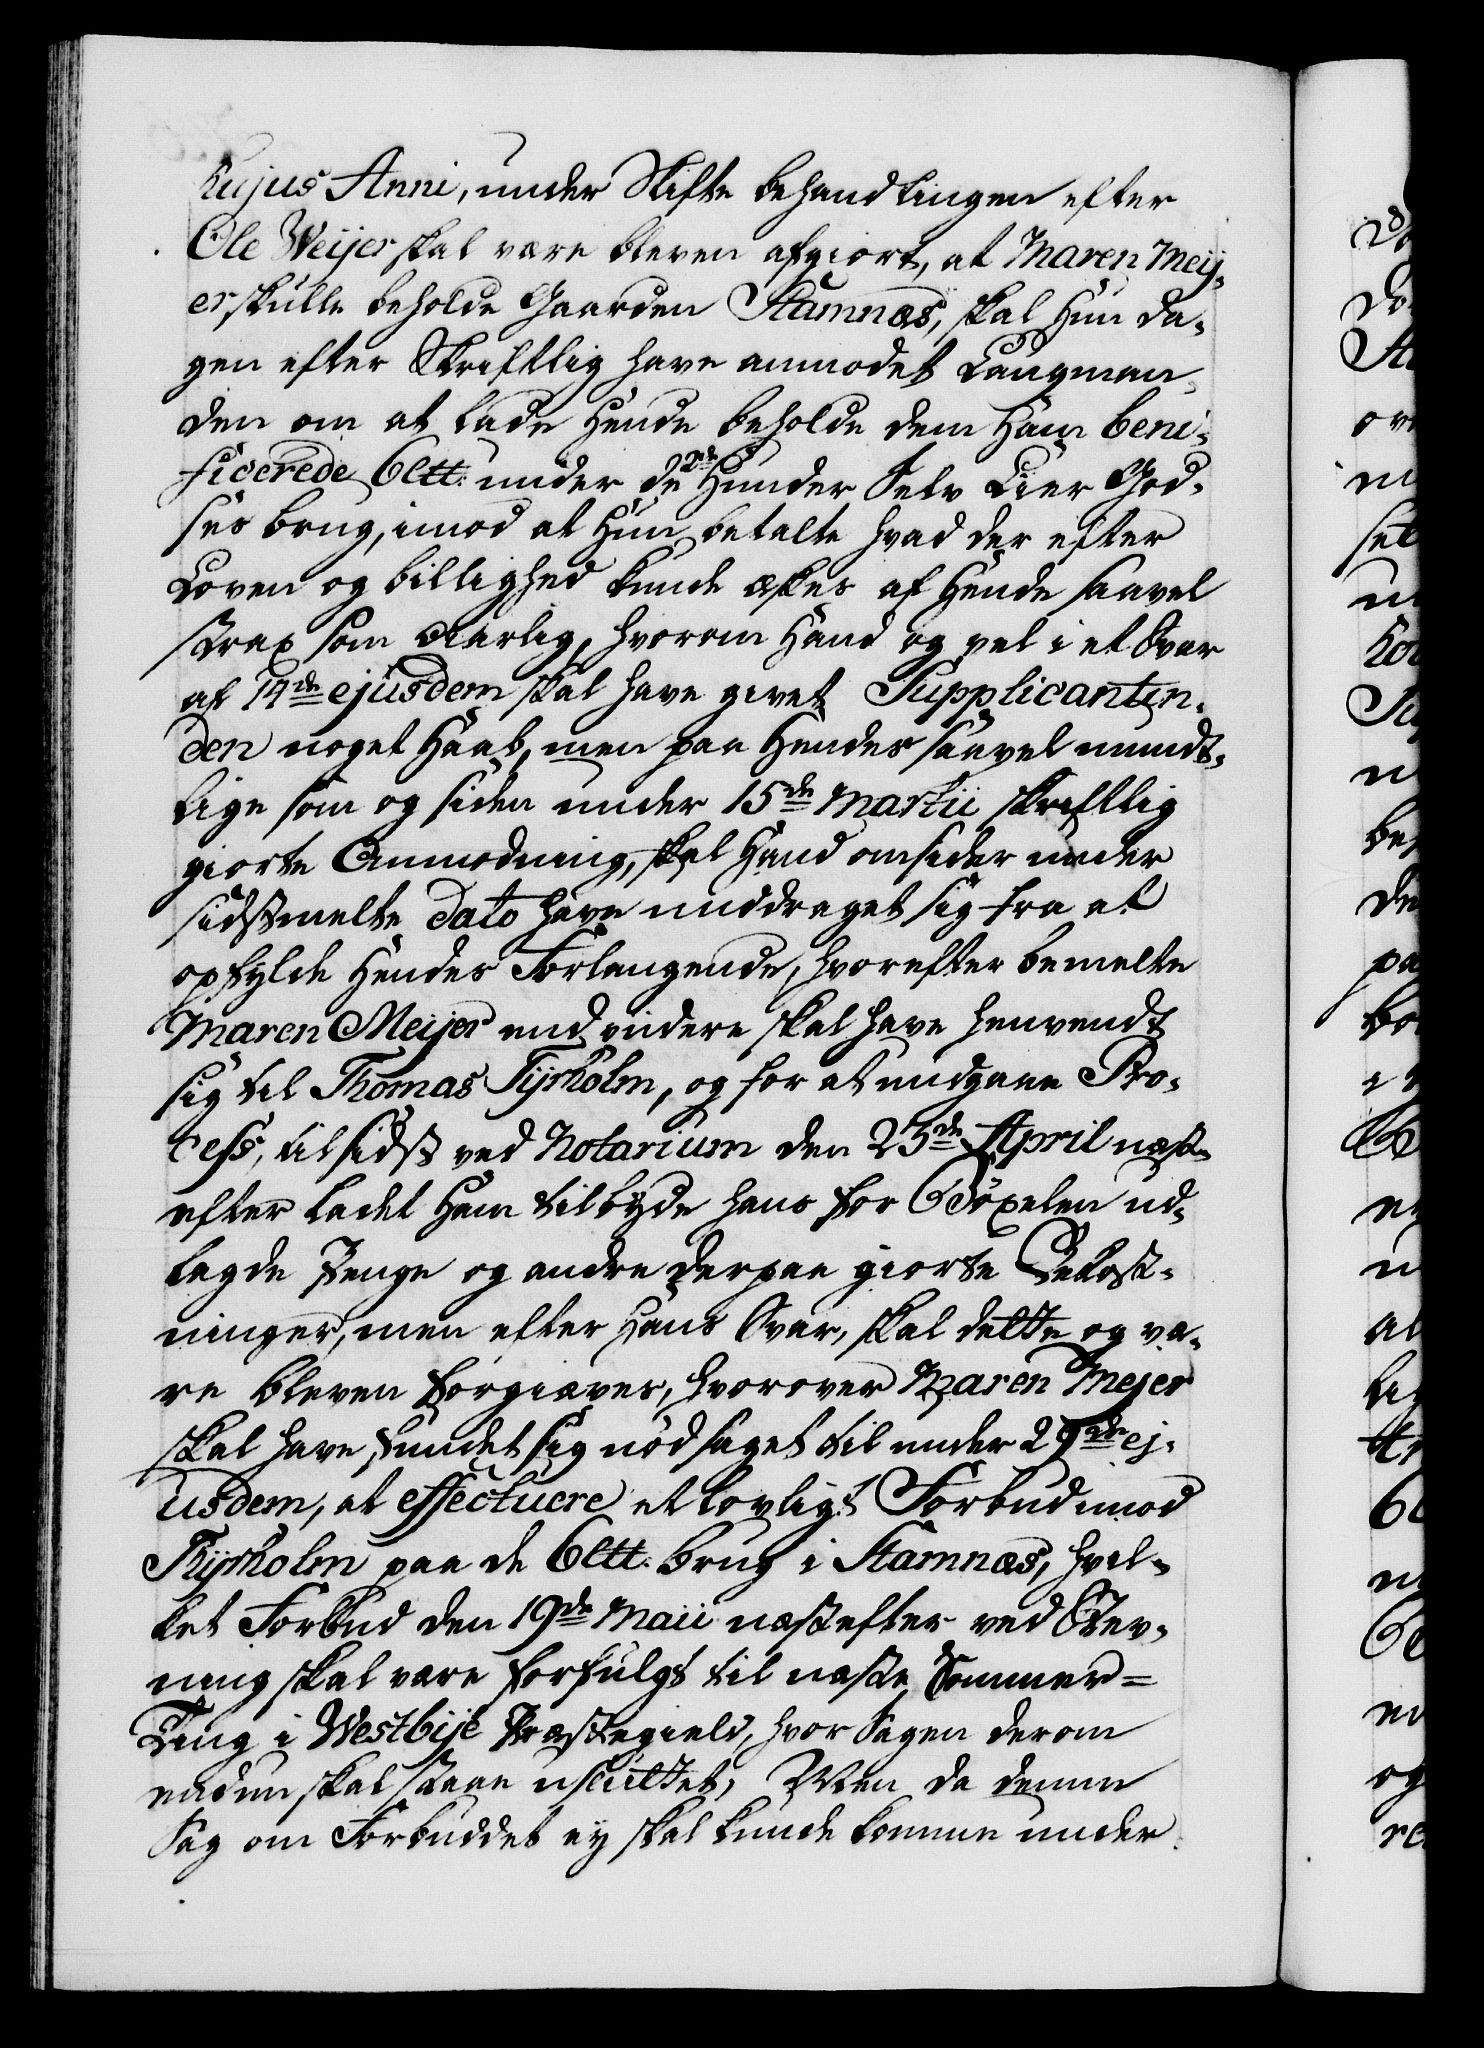 hujus Anni, under Skifte behandlingen efter
Ole Weijer skal være bleven afgiort, at Maren Meij-
er skulle beholde Gaarden Stamnæs, skal Hun da-
gen efter Skriftlig have anmodet Laugman
den om at lade Hende beholde dem Ham beni-
ficerede 6 ltt: under de 2de Hunder Selv Lier God-
ses brug, imod at Hun betalte hvad der efter
Loven og billighed kunde æskes af Hende saavel
strax som Aarlig, hvorom Hand og vel i et Svar
af 14de ejusdem skal have givet Supplicantin-
den noget Haab, men paa Hendes saavel mundt-
lige som og siden under 15de Martii skriftlig
giorte Anmodning, skal Hand omsider under
sidstmelte dato have unddraget sig fra at
opfylde Hendes Forlangende, hvorefter bemelte
Maren Meijer end videre skal have henvendt
sig til Thomas Tyrholm, og for at undgaae Pro-
cess, til sidst ved Notarium den 23de April næst-
efter ladet Ham tilbyde hans for Böxelen ud-
lagde Penge og andre derpaa giorte Bekost-
ninger, men efter Hans Svar, skal dette og væ-
re bleven forgiæves, hvorover Maren Mejer
skal have fundet sig nödsaget til under 29de ej-
usdem, at effectuere et lovligt Forbud imod
Thyrholm paa de 6 ltt. brug i Stamnæs, hvil-
ket Forbud den 19de Maii næstefter ved Stev-
ning skal være forfulgt til næste Sommer-
Ting i Westbye Præstegield, hvor Sagen derom
endnu skal staae usluttet, Men da denne
Sag om Forbuddet ey skal kunde komme under